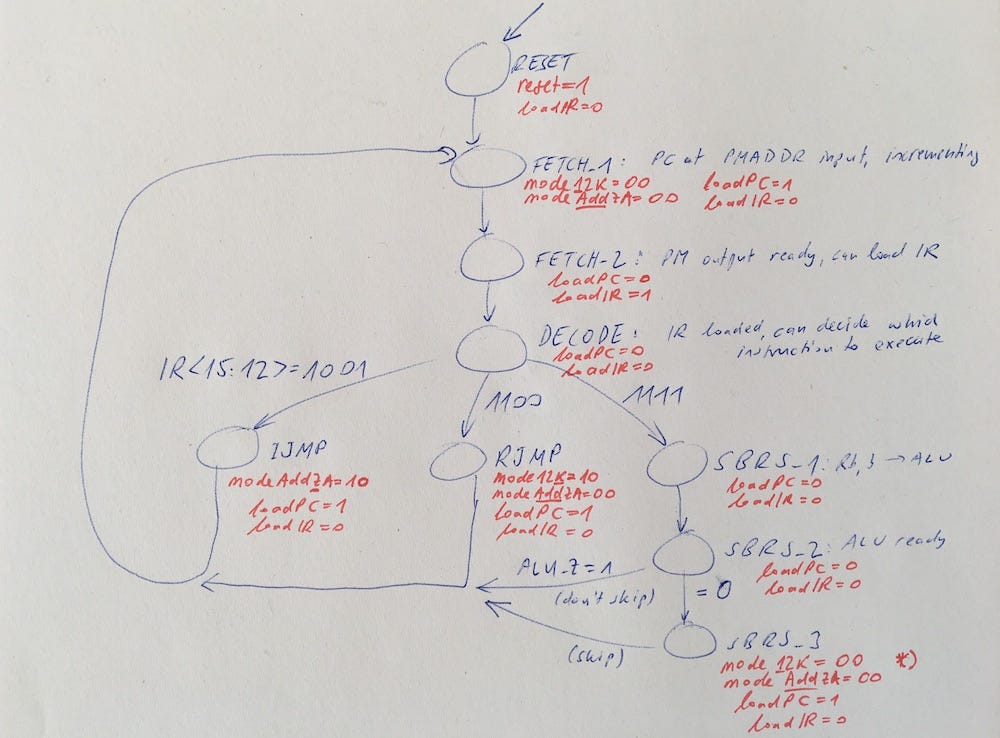 RESET
reset=1
loadIR=0
FETCH_1: PC at PMADDR input, incrementing
mode 12K=00 loadPC=1
mode AddZA=00 loadIR=0
FETCH_2: PM output ready, can load IR
loadPC=0
loadIR=1
DECODE: IR loaded, can decide which
instruction to execute
loadPC=0
loadIR=0
IR<15:12>=1001
1100
1111
IJMP
mode AddZA=10
loadPC=1
loadIR=0
RJMP
mode 12K=10
mode AddZA=00
loadPC=1
loadIR=0
SBRS_1: Rb, b → ALU
loadPC=0
loadIR=0
SBRS_2: ALU ready
loadPC=0
loadIR=0
ALU_Z=1
(don't skip)
=0
(skip)
SBRS_3
mode 12K=00 *)
mode AddZA=00
loadPC=1
loadIR=0